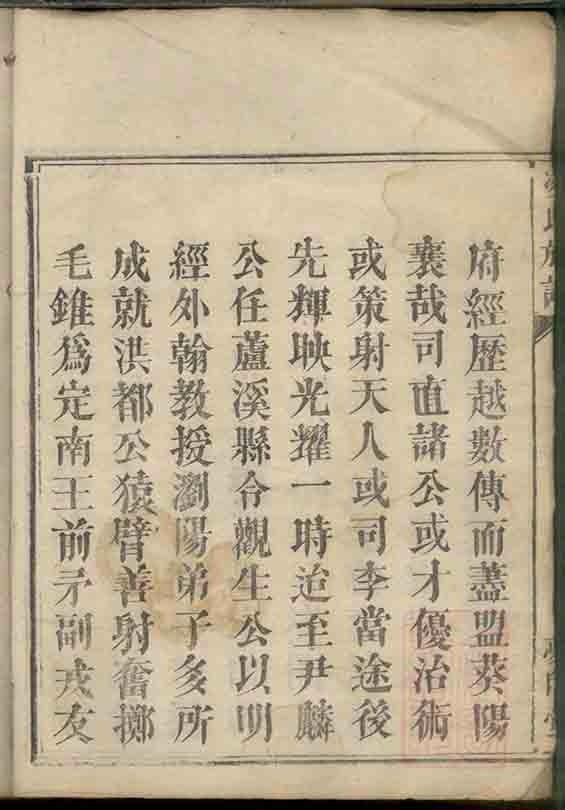 府經歷越數傳而藎盟葵陽
襄哉司直諸公或才優治術
或策射天人或司李當途後
先輝映光耀一時迨至尹麟
公任蘆溪縣令觀生公以明
經外翰教授瀏陽弟子多所
成就洪都公猿臂善射奮擲
毛錐爲定南王前矛副戎友